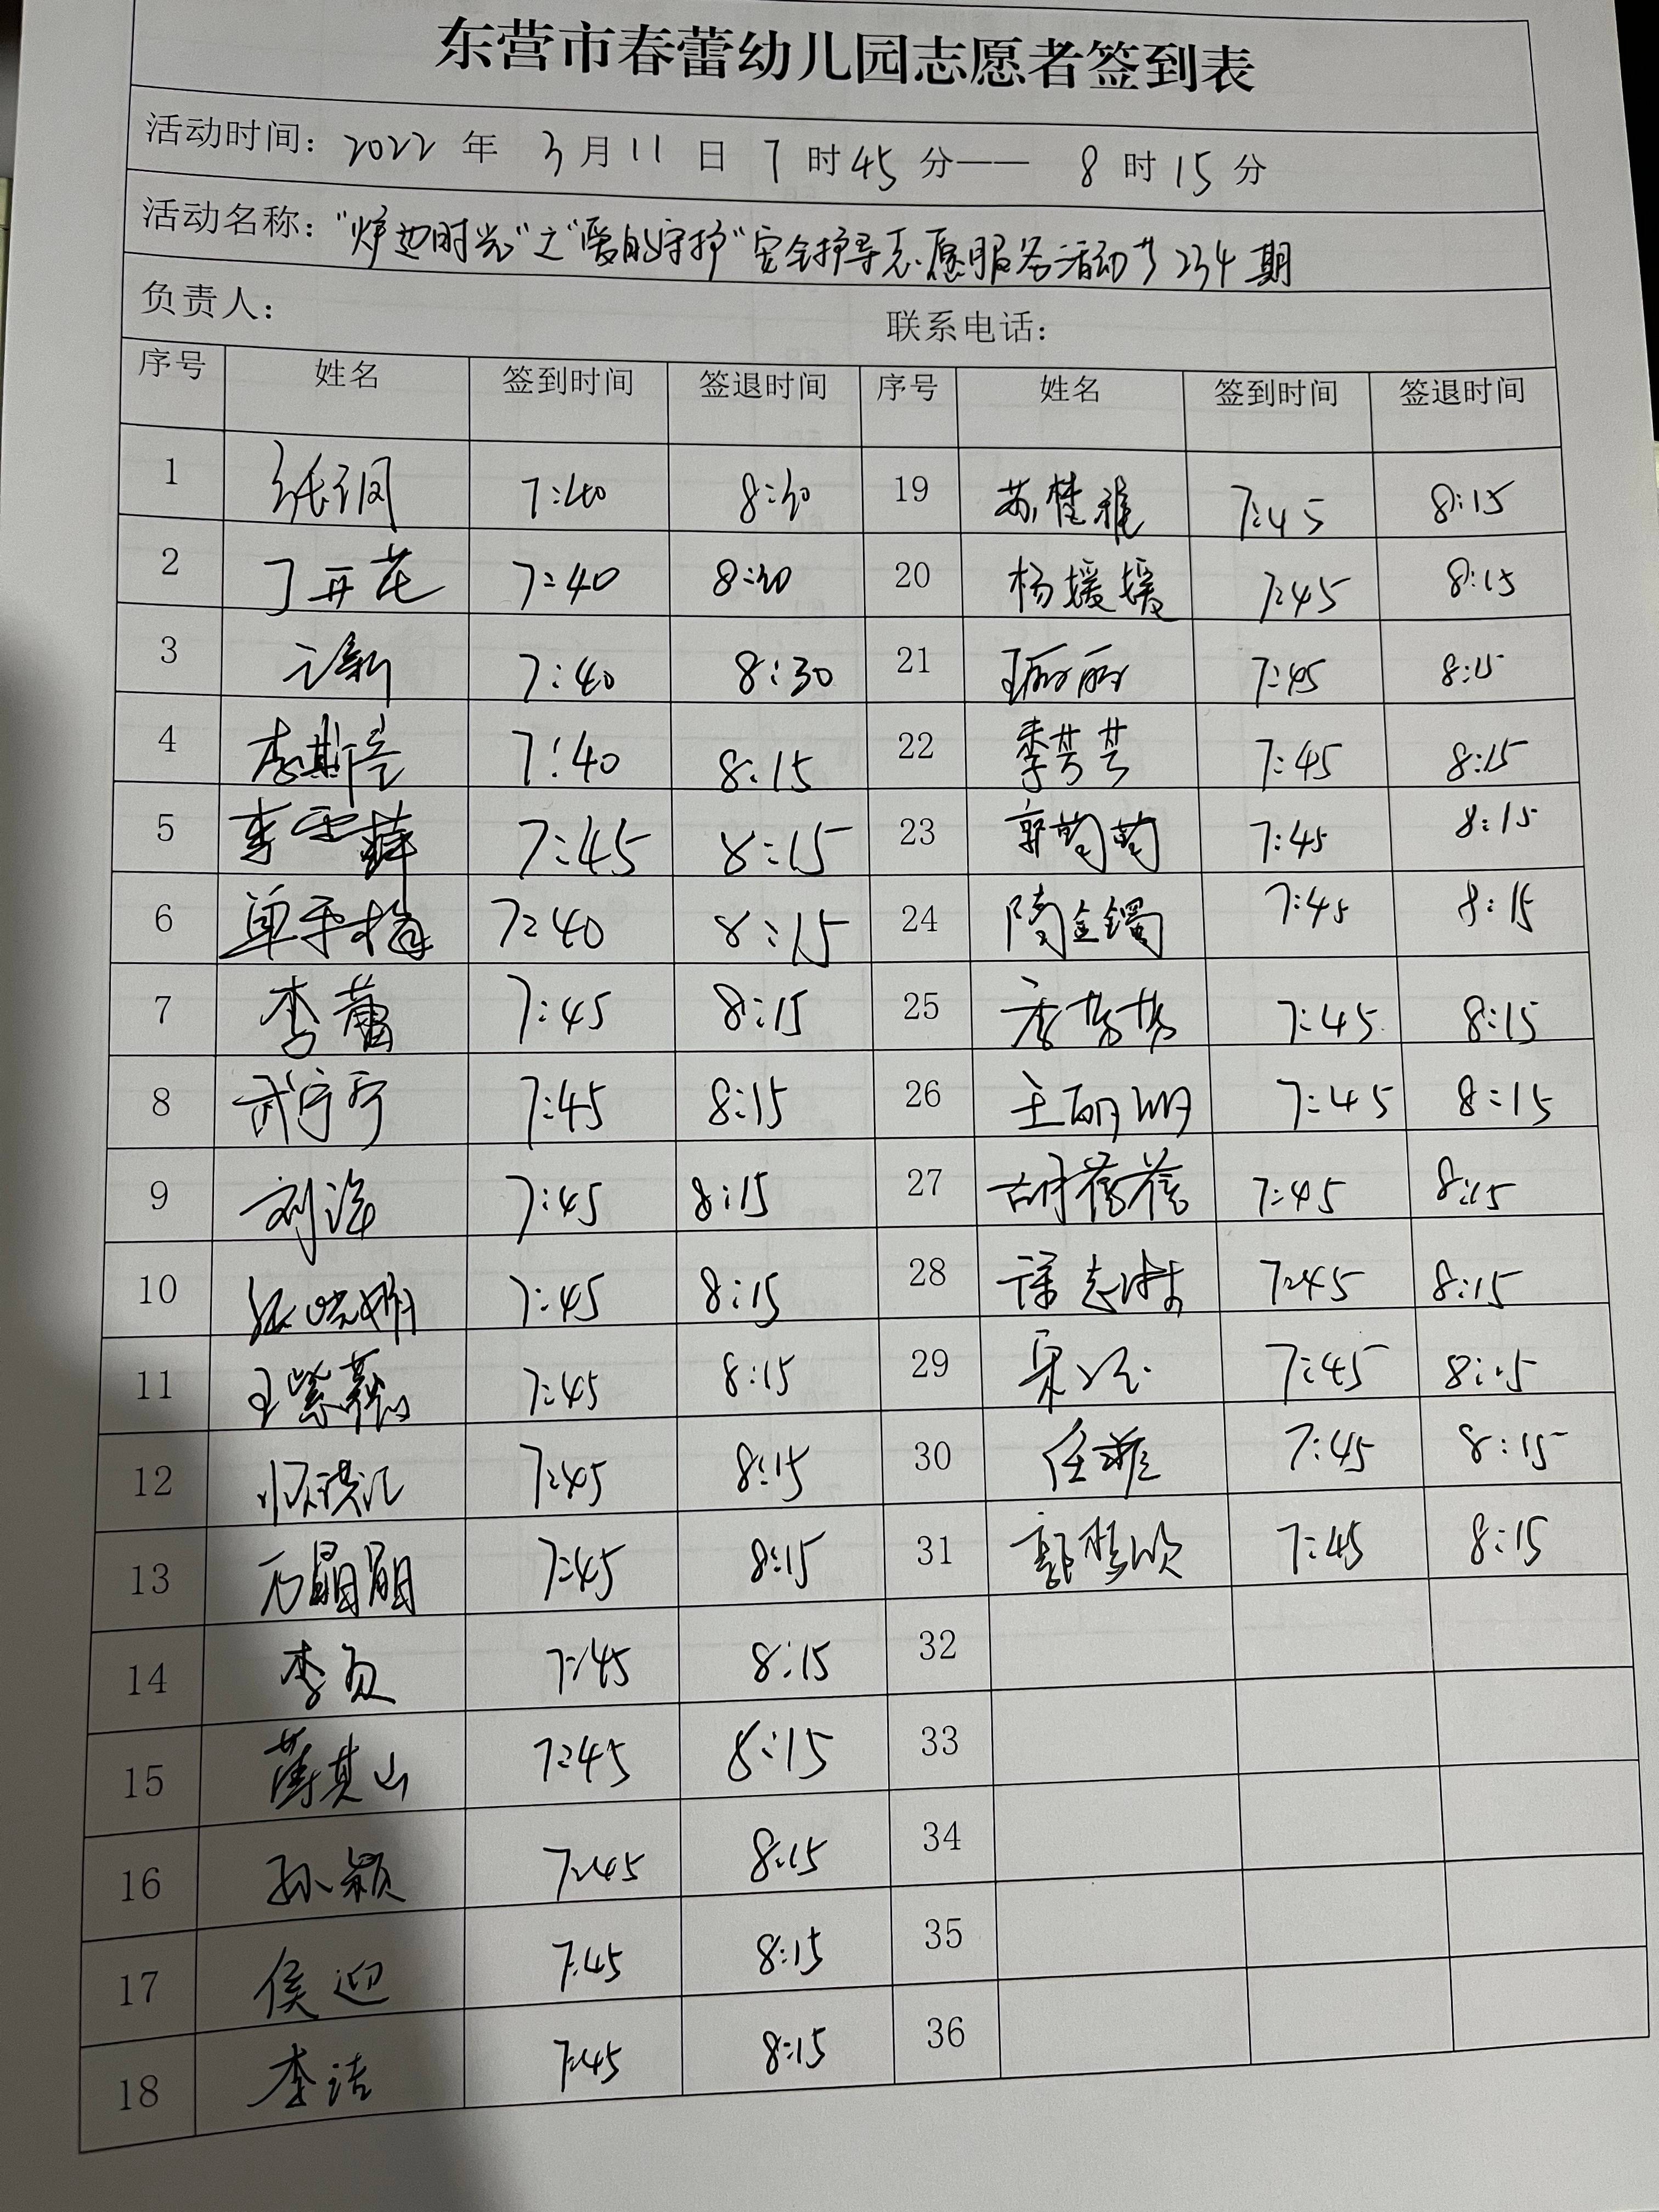 东营市春蕾幼儿园志愿者签到表
活动时间: 2022 年 3 月 11 日 7 时 45 分—— 8 时 15 分
活动名称: "炉边时光"之"爱的守护"安全护导志愿服务活动第234期
负责人: 联系电话:
序号 姓名 签到时间 签退时间 序号 姓名 签到时间 签退时间
1 7:40 8:30 19 苏桂雅 7:45 8:15
2 丁开花 7:40 8:30 20 杨媛媛 7:45 8:15
3 7:40 8:30 21 王丽丽 7:45 8:15
4 7:40 8:15 22 季芸芸 7:45 8:15
5 7:45 8:15 23 郭萄萄 7:45 8:15
6 7:40 8:15 24 7:45 8:15
7 李蕾 7:45 8:15 25 7:45 8:15
8 7:45 8:15 26 7:45 8:15
9 7:45 8:15 27 胡蓓蓓 7:45 8:15
10 7:45 8:15 28 7:45 8:15
11 7:45 8:15 29 7:45 8:15
12 7:45 8:15 30 7:45 8:15
13 7:45 8:15 31 7:45 8:15
14 7:45 8:15 32
15 薄其山 7:45 8:15 33
16 孙颖 7:45 8:15 34
17 侯迎 7:45 8:15 35
18 李洁 7:45 8:15 36